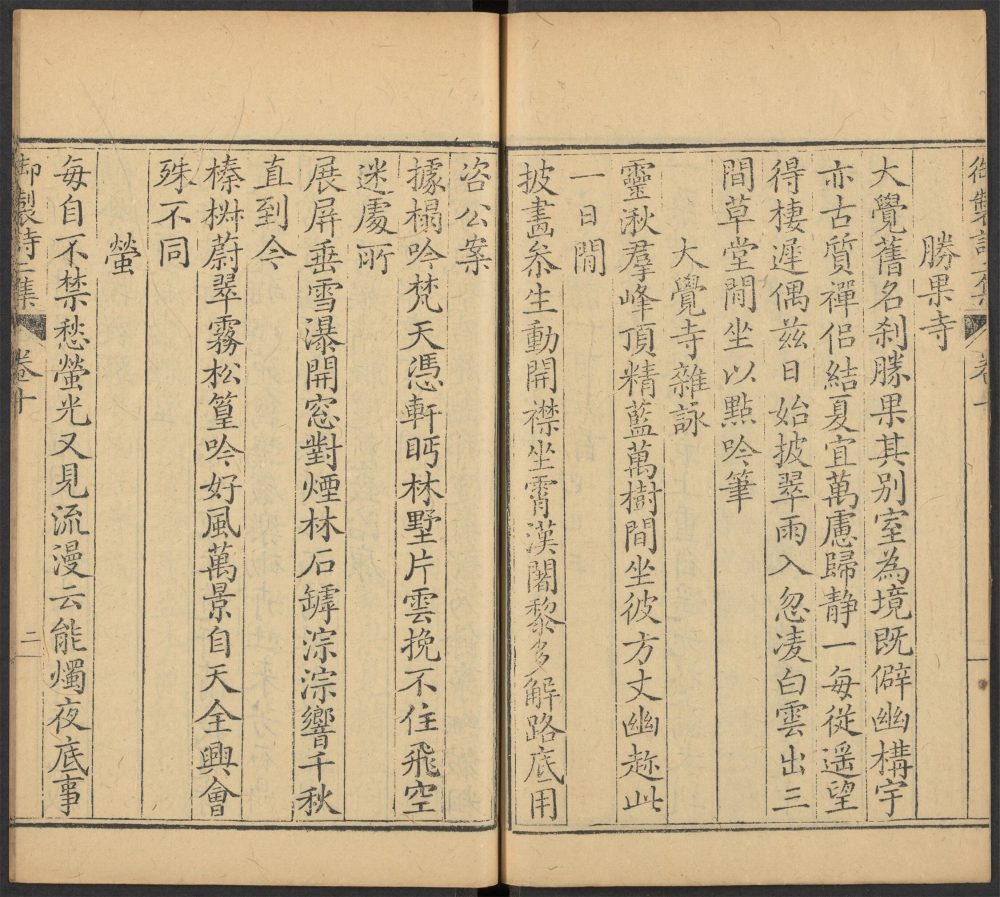 御製詩二集 卷十 一
勝果寺
大覺舊名刹勝果其别室為境既僻幽構宇
亦古質禪侣結夏宜萬慮歸静一每從遥望
得棲遲偶兹日始披翠雨入忽凌白雲出三
間草堂閒坐以點吟筆
大覺寺雜詠
靈秋羣峰頂精藍萬樹間坐彼方丈幽趂此
一日閒
披畵叅生動開襟坐霄漢闍黎多解路底用
咨公案
據榻吟梵天憑軒眄林墅片雲挽不住飛空
迷處所
展屏垂雪瀑開窓對煙林石罅淙淙響千秋
直到今
榛桝蔚翠霧松篁吟好風萬景自天全興會
殊不同
螢
每自不禁愁螢光又見流漫云能燭夜底事
御製詩二集 卷十 二